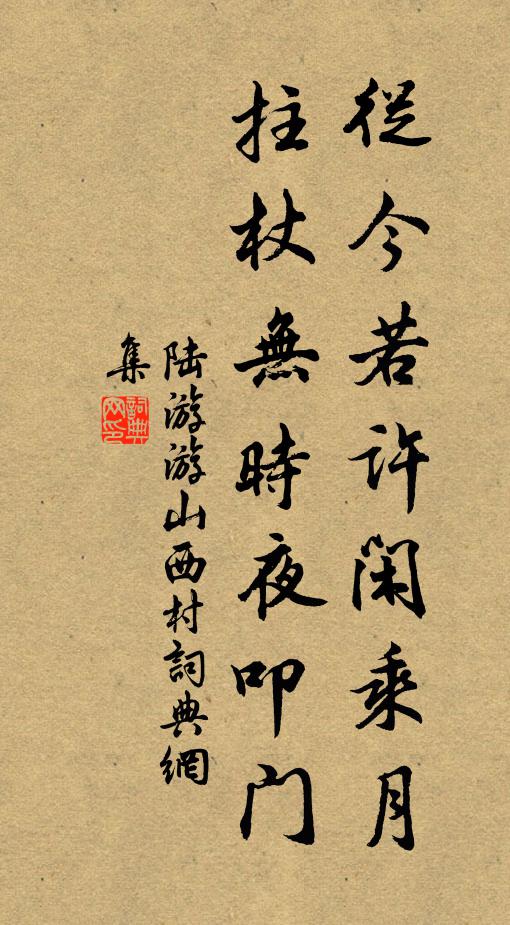 從今若許閑乘月
拄杖無時夜叩门
陆游游山西村詞典網
集
詞典
网印